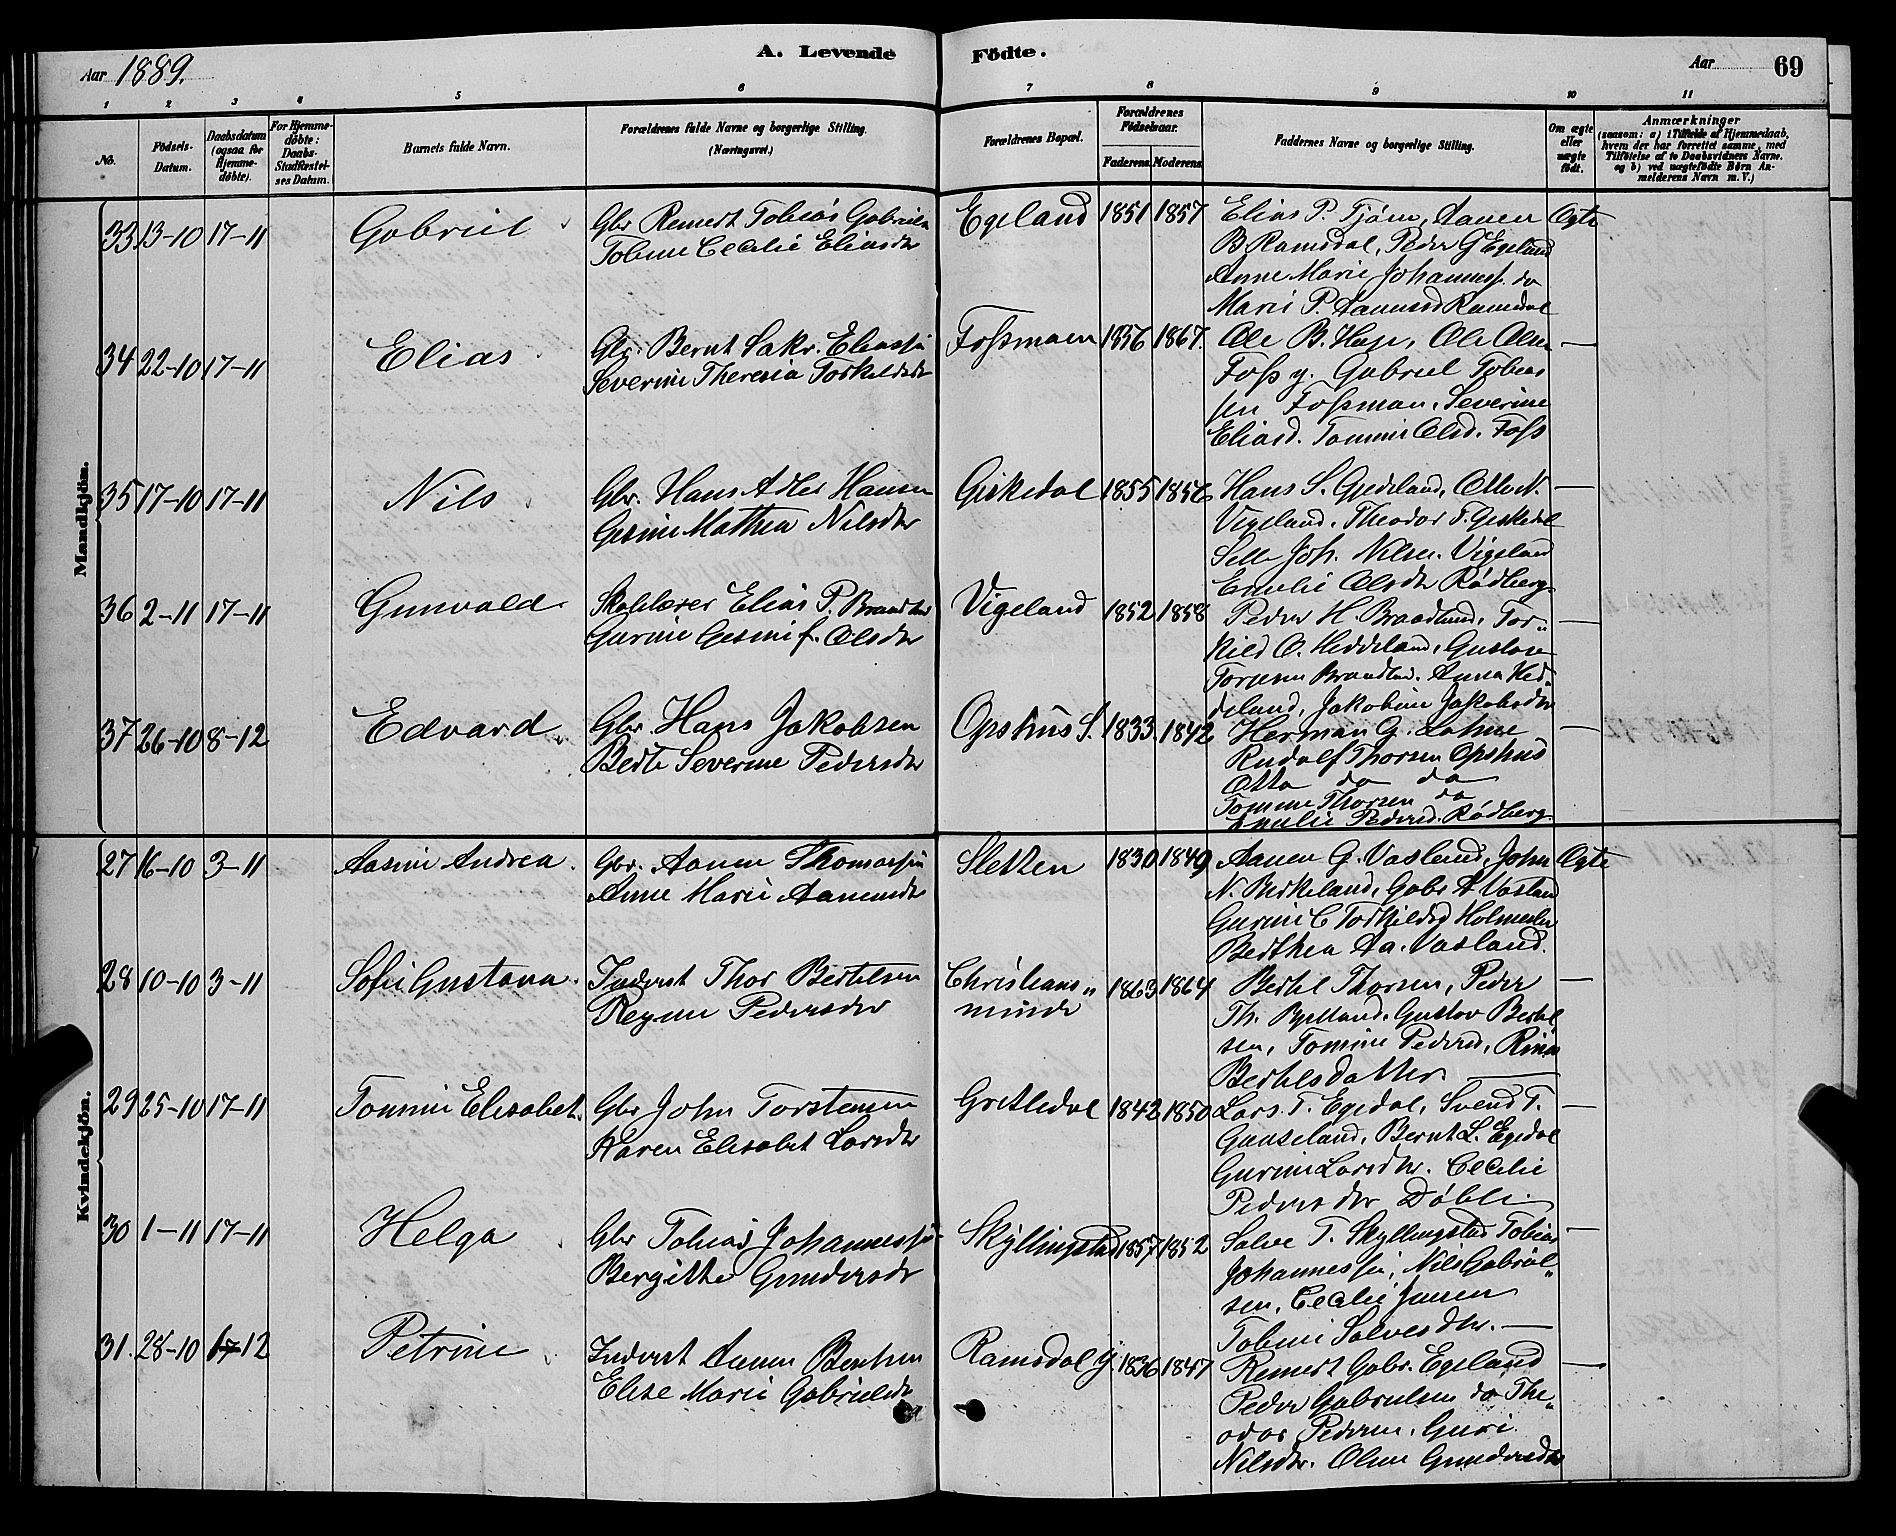 A. Levende Födte.
Aar 1889.
Aar
69
1 2 3 4 5 6 7 8 9 10 11
No.
Födsels-Datum.
Daabsdatum (ogsaa for Hjemme-döbte).
For Hjemme-döbte: Daabs-Stadfæstel-ses Datum.
Barnets fulde Navn.
Forældrenes fulde Navne og borgerlige Stilling.
(Næringsvei.)
Forældrenes Bopæl.
Forældrenes Födselsaar.
Faderens. Moderens.
Faddernes Navne og borgerlige Stilling.
Om ægte eller uægte födt.
Anmærkninger
(saasom: a) i Tilfælde af Hjemmedaab,
hvem der har forrettet samme, med
Tilföielse af to Daabsvidners Navne,
og b) ved uægtefödte Börn An-
melderens Navn m. V.)
Mandkjön.
33 13-10 17-11 Gabriel
Gbr Remert Tobias Gabriels
Tobine Cecilie Eliasdtr
Egeland 1851 1857
Elias P. Tjöm, Aanen
B. Ramsdal, Peder G Egeland
Anne Marie Johanness. do
Maris P. Aanensd Ramsdal
Ægte
34 22-10 17-11 Elias
Gbr. Bernt Sakr. Eliassen
Severine Theresia Torkildsdtr
Fossmoen 1856 1867.
Ole B. Haje, Ole Olsen
Foss y. Gabriel Tobias
sen Fossmoen, Severine
Eliasd. Tomine Olsd. Foss
—
35 17-10 17-11 Nils
Gbr. Hans Adler Hansen
Gesine Mathea Nilsdtr
Giskedal 1855 1856
Hans S. Gjedeland, Otto N.
Vigeland, Theodor T. Geskedal
Selle Joh. Nilsen. Vigeland
Emelie Olsdtr Rödberg
—
36 2-11 17-11 Gunvald
Skolelærer Elias P. Braadland
Gurine Gesine f. Olsdtr
Vigeland 1852 1858
Peder H. Braadland, Tor-
kild O. Heddeland, Gustav
Torjesen Braadland. Anna Hed-
deland, Jakobine Jakobsdtr
—
37 26-10 8-12 Edvard
Gbr. Hans Jakobsen
Berte Severine Pedersdtr
Opshus S. 1833. 1842
Herman G. Lohne
Rudolf Thorsen Opshus
Otto do do
Tomine Thorsen do
Emilie Pedersd. Rödberg
—
Kvindekjön.
27 16-10 3-11 Aasine Andrea.
Gbr. Aanen Thomassen
Anne Marie Aamundsdtr
Sletten 1830 1849
Aanen G. Vasland, John
N. Birkeland, Gabr A Vasland
Gurine C Torkildsd Holmeslet
Berthea Aa. Vasland.
Ægte
28 10-10 3-11 Sofie Gustava.
Inderst Thor Bertelsen
Regine Pedersdtr
Christians-
minde 1863 1864
Bertel Thorsen, Peder
Th. Bjelland, Gustav Bertel
sen, Tomine Pedersd, Rina
Bertelsdatter —
—
29 25-10 17-11 Tomine Elisabet.
Gbr John Torstensen
Karen Elisabet Larsdtr
Gretledal 1842 1850
Lars T. Egedal, Svend T.
Gauseland, Bernt L. Egedal
Gurine Larsdtr. Cecilie
Pedersdtr Döble.
—
30 1-11 17-11 Helga
Gbr Tobias Johannessen
Bergitte Gundersdtr
Skyllingstad 1857 1852
Salve T. Skyllingstad Tobias
Johannessen, Nils Gabriel-
sen, Cecilie Jensen
Tobine Salvesdtr. —
—
31. 28-10 12 Petrine
Inderst Aanen Bentsen
Elise Marie Gabrielsdtr
Ramsdal y. 1836 1847
Remert Gabr. Egeland
Peder Gabrielsen do The-
odor Pedersen, Guri
Nilsdtr. Oline Gundersdtr
—